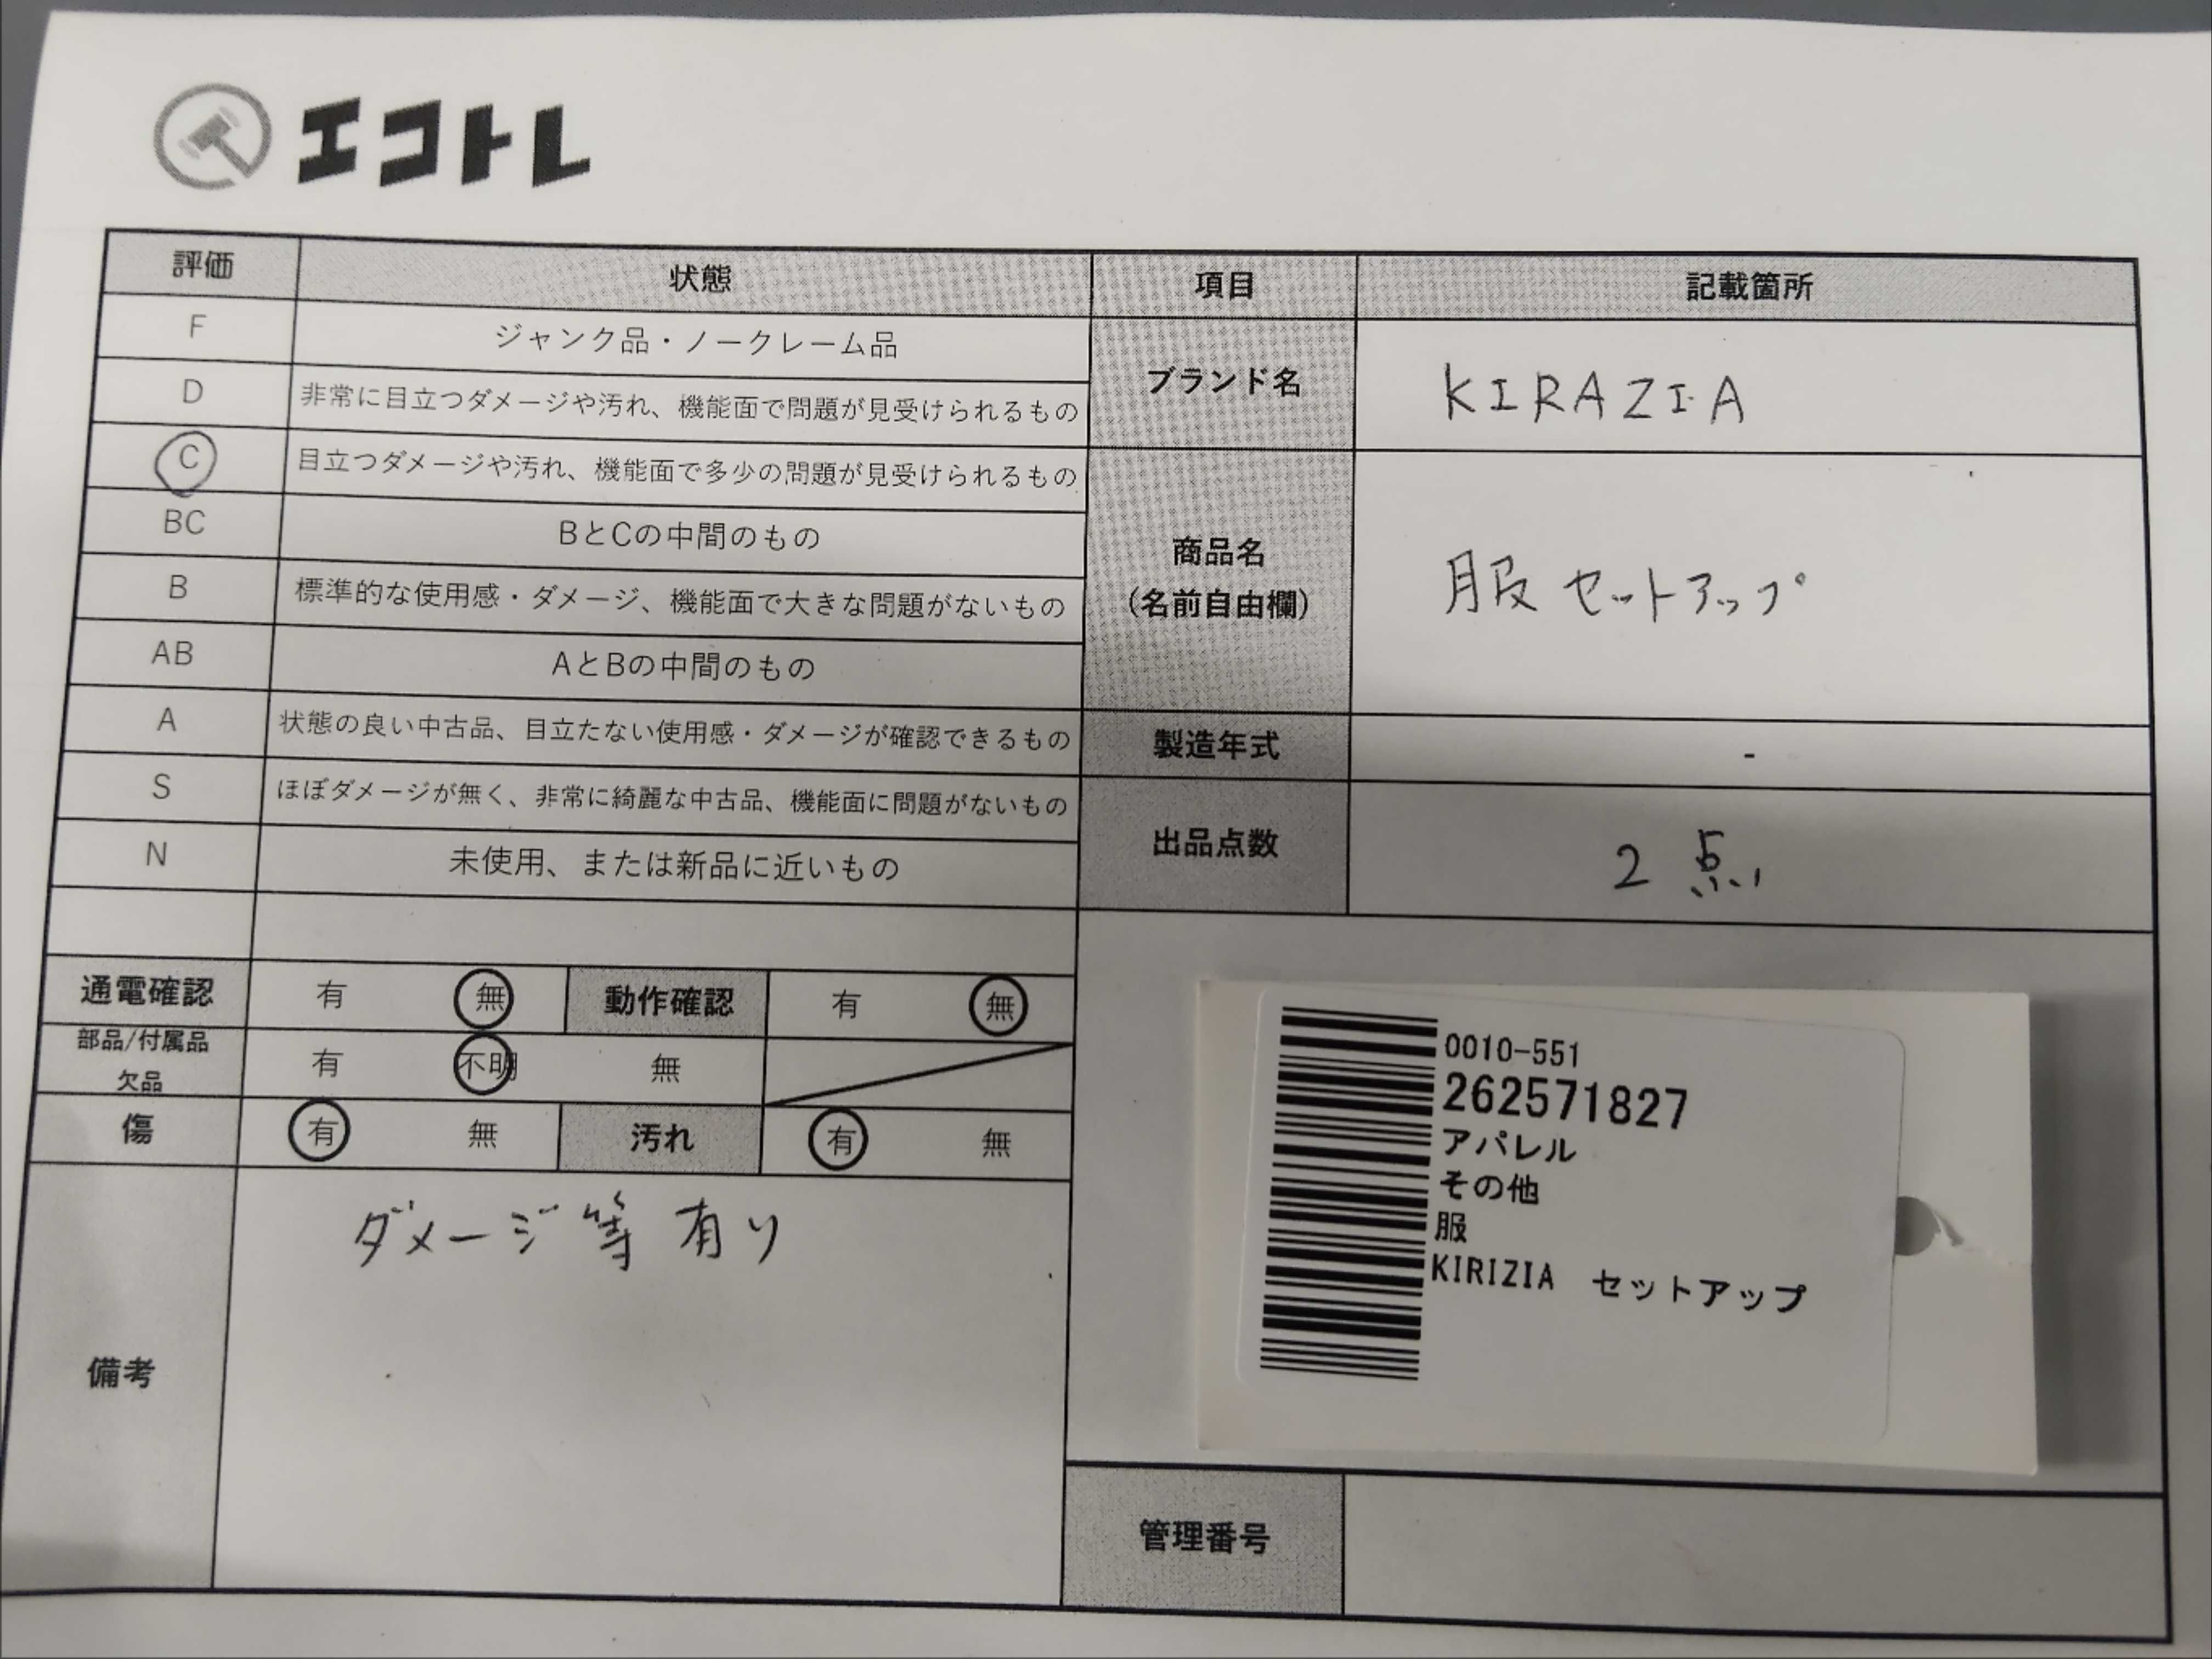 エコトレ
評価 状態 項目 記載箇所
F ジャンク品・ノークレーム品
D 非常に目立つダメージや汚れ、機能面で問題が見受けられるもの
C 目立つダメージや汚れ、機能面で多少の問題が見受けられるもの
BC BとCの中間のもの
B 標準的な使用感・ダメージ、機能面で大きな問題がないもの
AB AとBの中間のもの
A 状態の良い中古品、目立たない使用感・ダメージが確認できるもの
S ほぼダメージが無く、非常に綺麗な中古品、機能面に問題がないもの
N 未使用、または新品に近いもの
ブランド名 KIRAZIA
商品名
(名前自由欄)
服 セットアップ
製造年式 -
出品点数 2点
通電確認 有 無 動作確認 有 無
部品/付属品
欠品
有 不明 無
傷 有 無 汚れ 有 無
備考 ダメージ等有り
0010-551
262571827
アパレル
その他
服
KIRIZIA セットアップ
管理番号